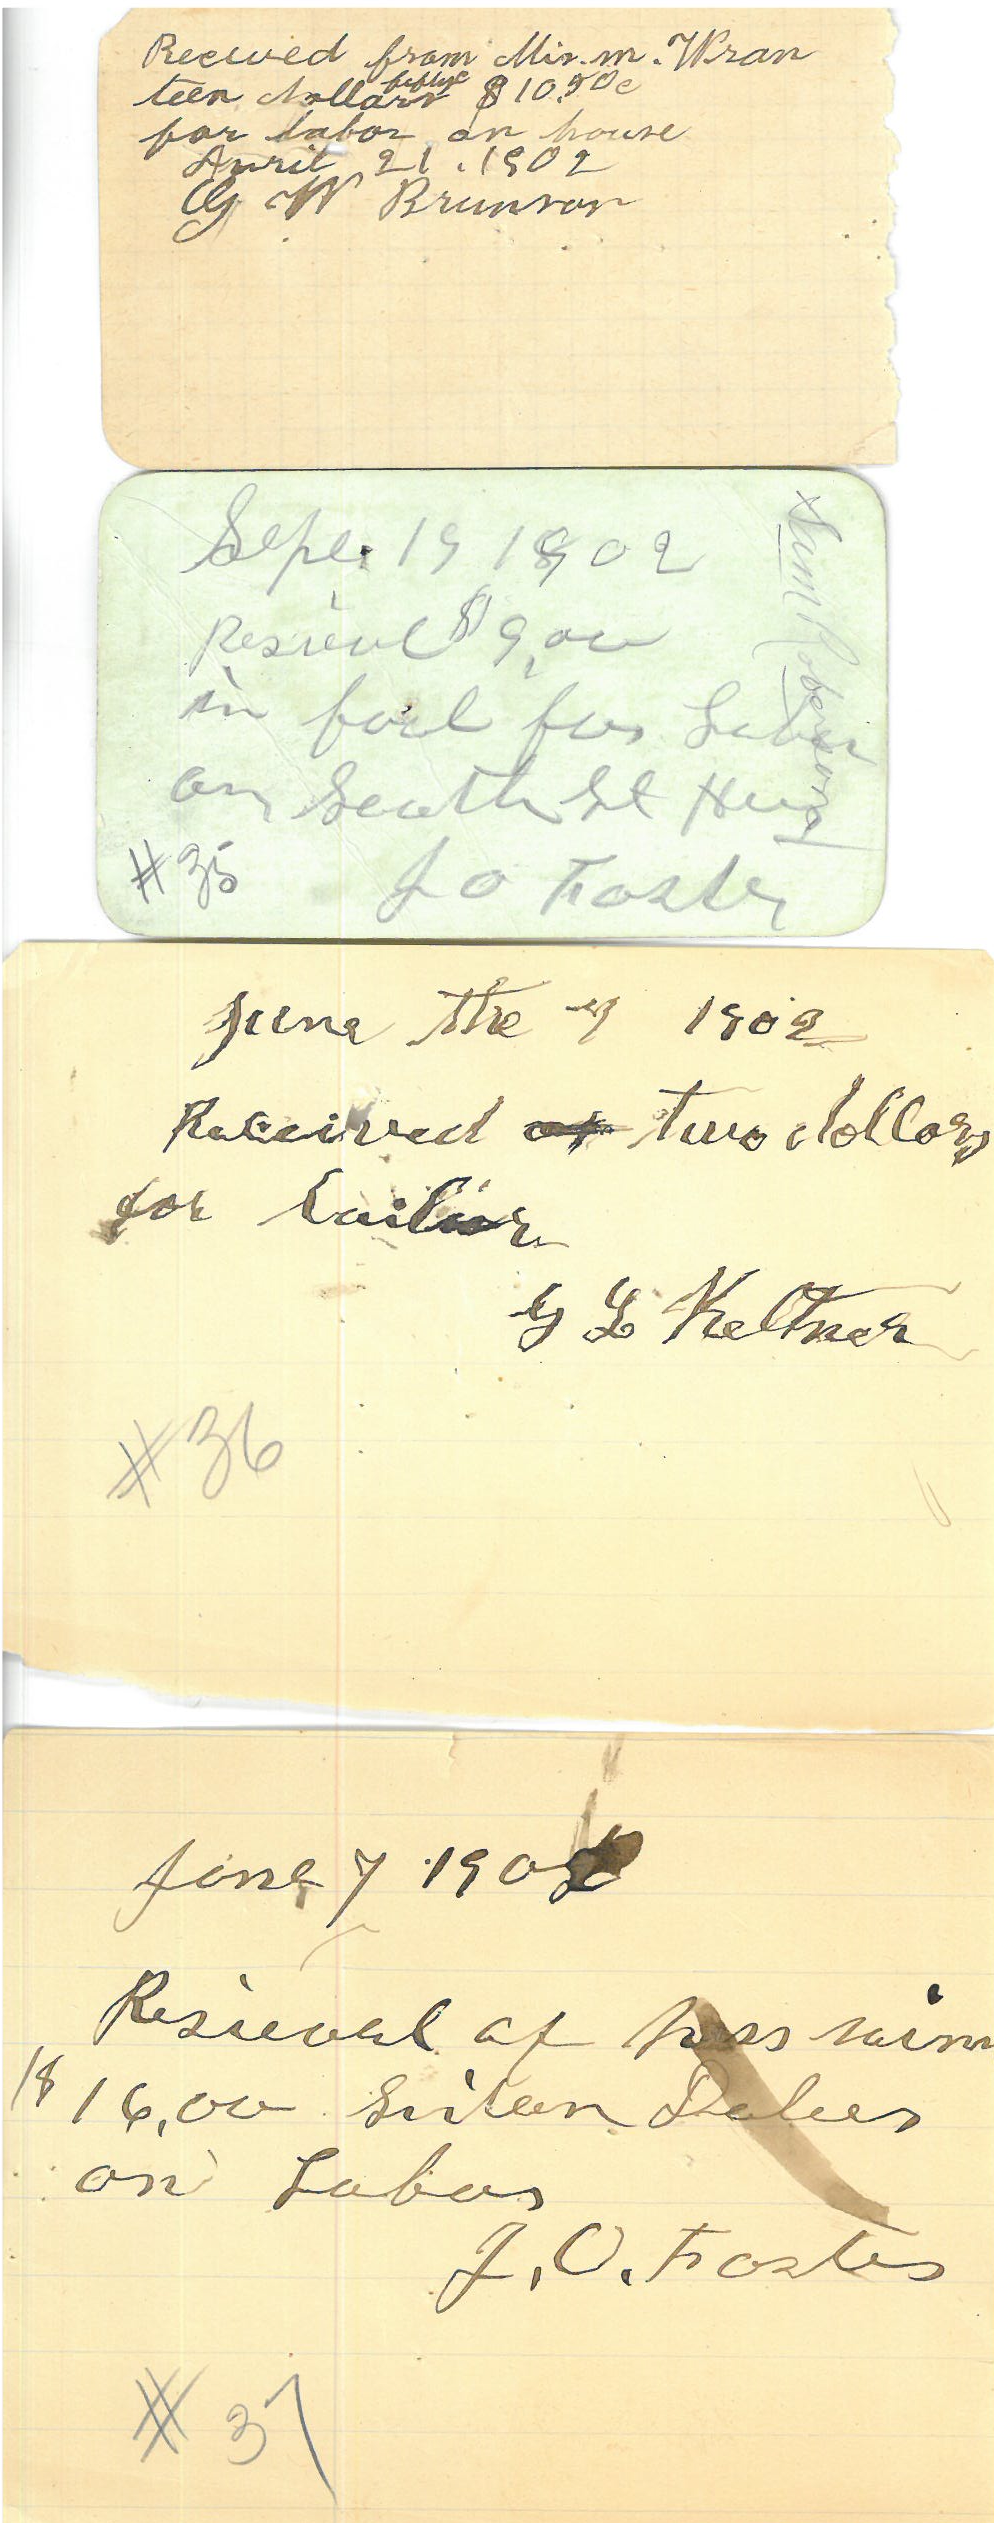 Received from Mis. m. Wran
teen dollars fiftyc $10.50c
for labor on house
April 21. 1902
G W Brunson
Sept. 19 1902
Resieved $9,00
in foul for Laber
on South St Hus
#35 J O Foster
Sam Roberson
June the 7 1902
Received two dollars
for
G L Keltner
#36
June 7 190
Resieved of
$16,00 Sixteen Dolers
on Labor
J. O. Foster
#37